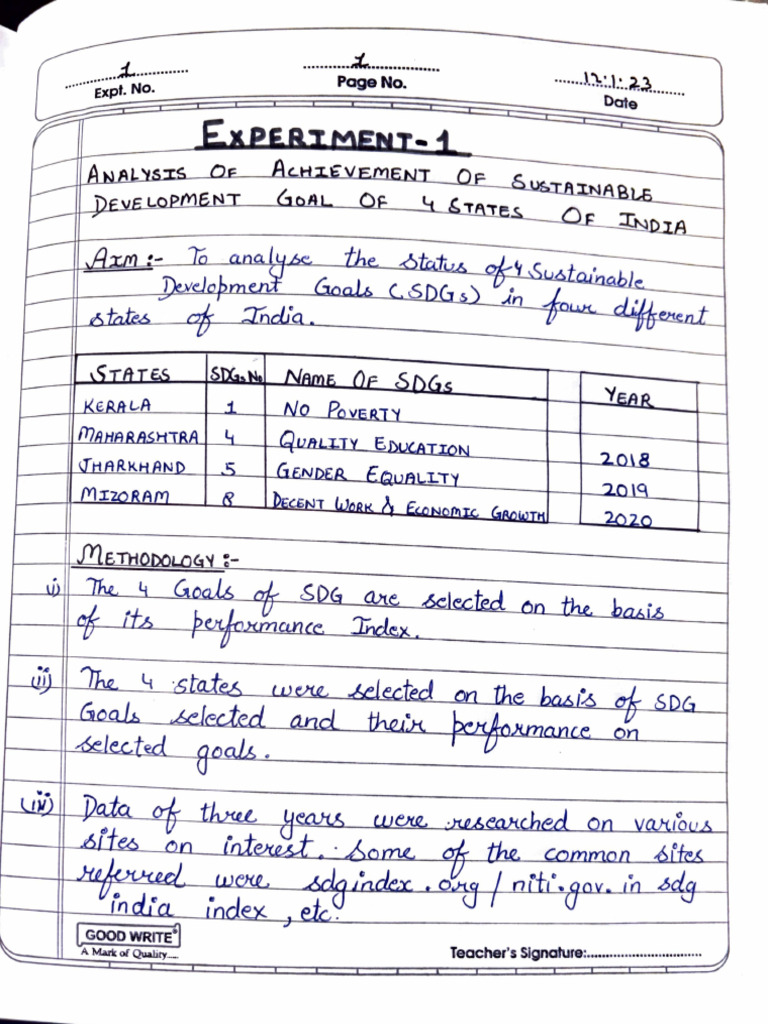 1
Expt. No.
1
Page No.
12.1.23
Date
EXPERIMENT-1
ANALYSIS OF ACHIEVEMENT OF SUSTAINABLE
DEVELOPMENT GOAL OF 4 STATES OF INDIA
AIM :- To analyse the status of 4 Sustainable
Development Goals (SDGs) in four different
states of India.
STATES SDGs No NAME OF SDGs YEAR
KERALA 1 NO POVERTY
MAHARASHTRA 4 QUALITY EDUCATION 2018
JHARKHAND 5 GENDER EQUALITY 2019
MIZORAM 8 DECENT WORK & ECONOMIC GROWTH 2020
METHODOLOGY :-
i) The 4 Goals of SDG are selected on the basis
of its performance Index.
ii) The 4 states were selected on the basis of SDG
Goals selected and their performance on
selected goals.
Data of three years were researched on various
sites on interest. Some of the common sites
referred were sdgindex.org / niti.gov.in sdg
india index, etc.
GOOD WRITE
A Mark of Quality.....
Teacher's Signature:..............................